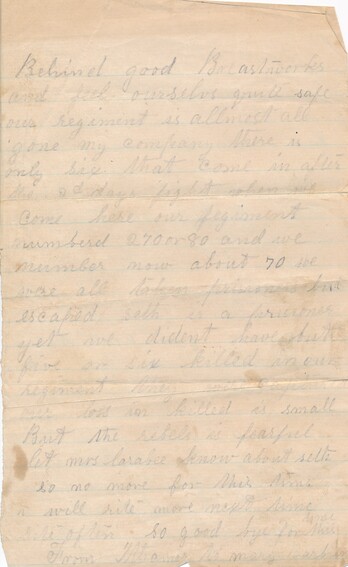 Behind good Breastworks
and feel ourselvs quill safe
our regiment is allmost all
gone my company there is
only six that come in after
the 2d days fight when we
come here our regiment
numberd 270 or 80 and we
number now about 70 we
ware all taken prisoners but
escaped seth is a prisoner
yet we dident have but
five or six killed in our
regiment they
our loss in killed is small
But the rebels is fearful
let mrs know about seth
so no more for this time
i will rite more next time
rite often so good bye for this time
From